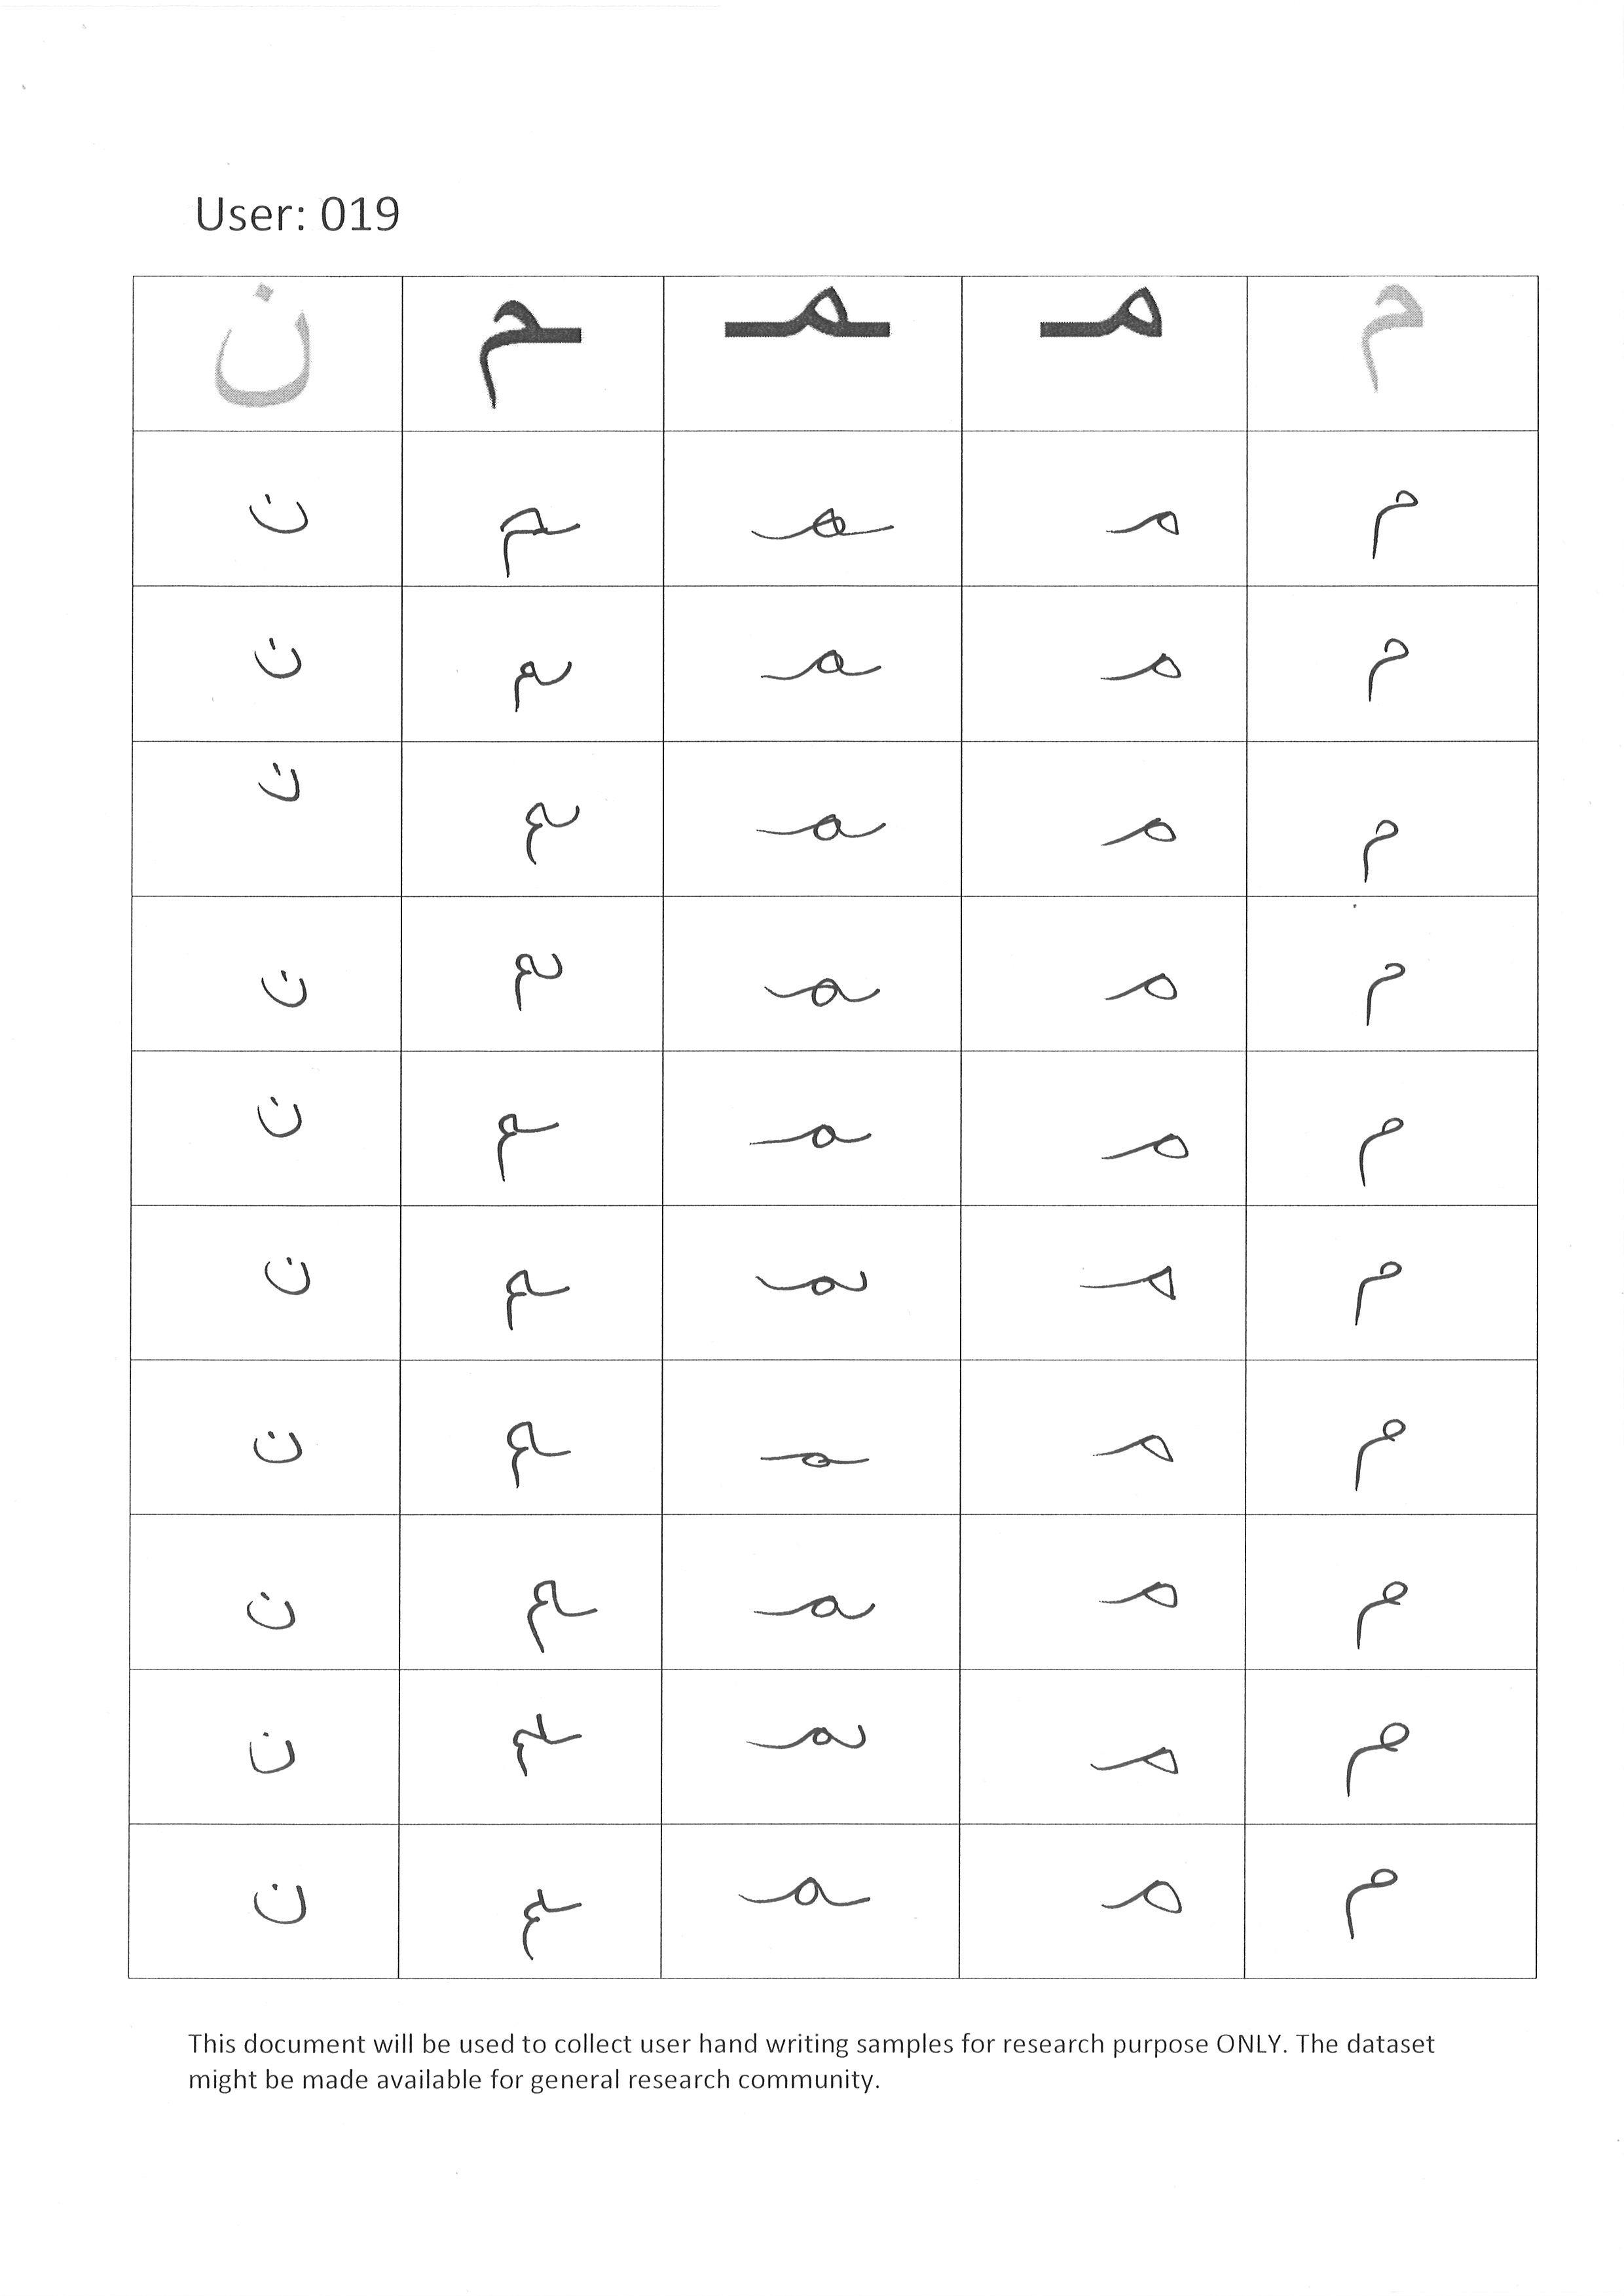 User: 019
م مـ ـمـ ـم ن
م مـ ـمـ ـم ن
م مـ ـمـ ـم ن
م مـ ـمـ ـم ن
م مـ ـمـ ـم ن
م مـ ـمـ ـم ن
م مـ ـمـ ـم ن
م مـ ـمـ ـم ن
م مـ ـمـ ـم ن
م مـ ـمـ ـم ن
م مـ ـمـ ـم ن
This document will be used to collect user hand writing samples for research purpose ONLY. The dataset
might be made available for general research community.